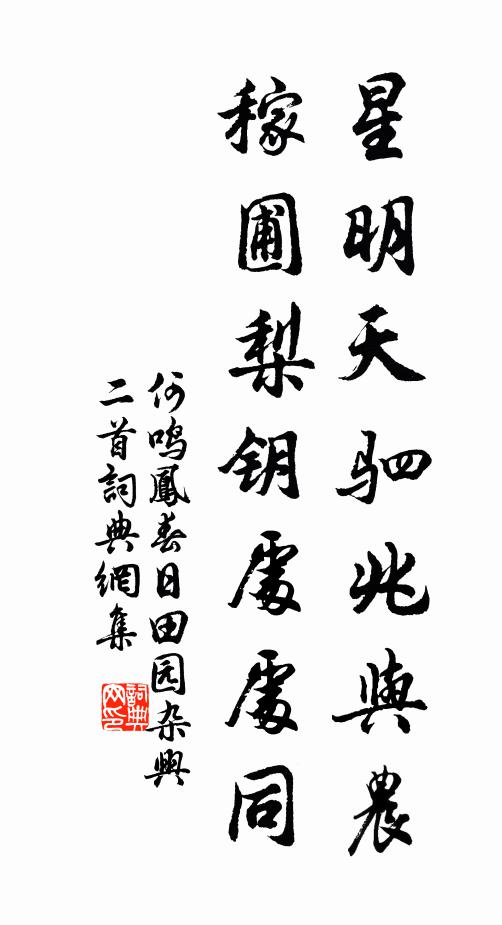 星明天驷兆與農
稼圃梨钥處處同
何鳴鳳春日田园杂興
二首詞典網集
詞典网印